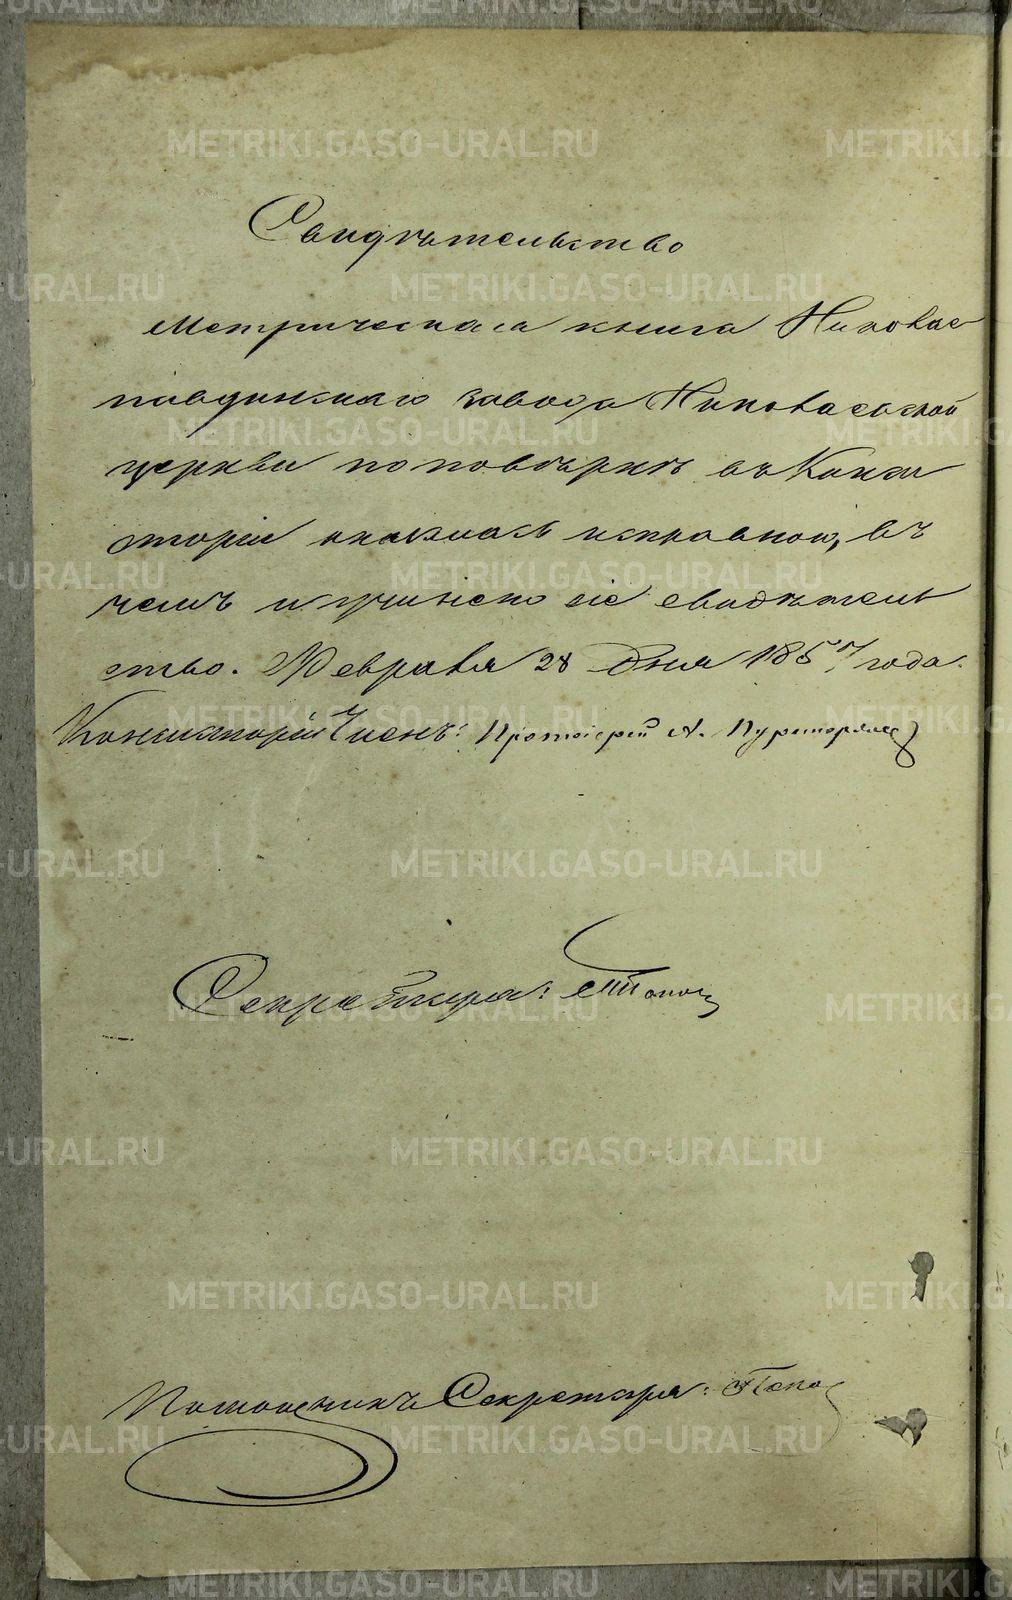 Свидѣтельство
Метрическая книга Николае
павдинскаго завода Николаевской
церкви по повѣркѣ въ Конси
сторіи оказалась исправною, въ
чемъ и учинено сіе свидѣтель
ство. Февраля 28 дня 1857 года.
Консисторіи Членъ: Протоіерей А.
Секретарь: Попов
Помощникъ Секретаря: Попо
METRIKI.GASO-URAL.RU